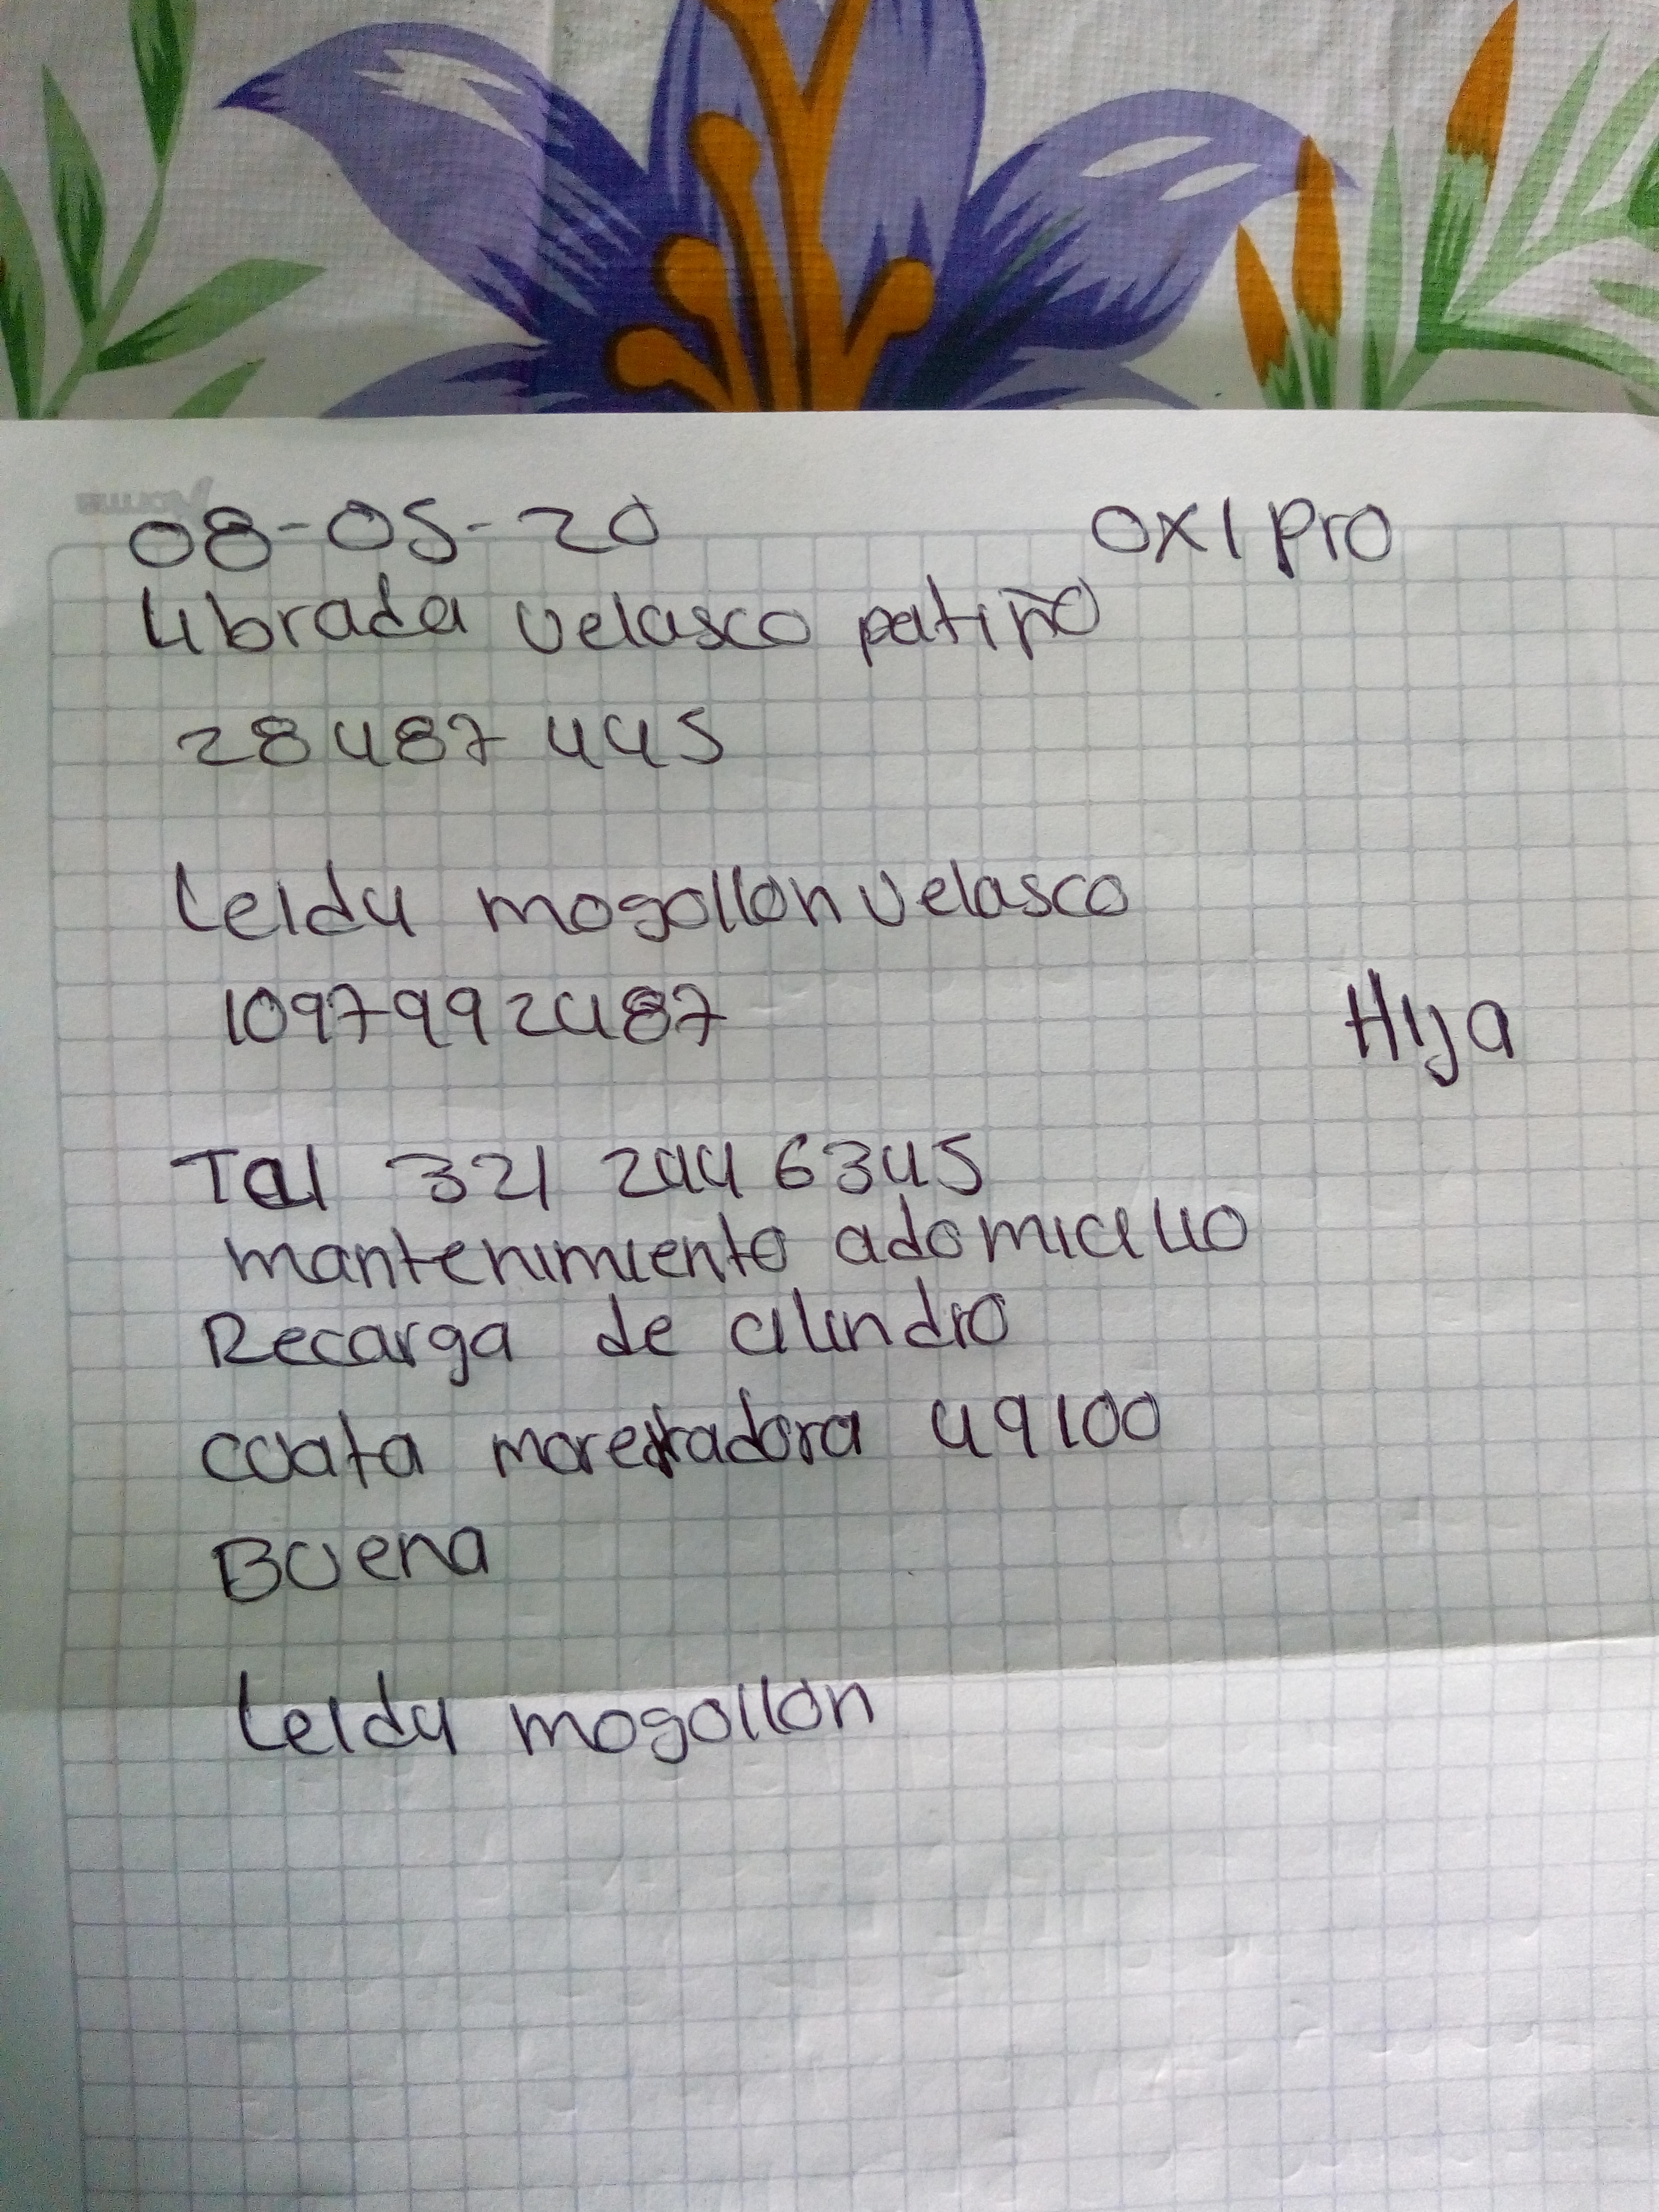 08-05-20 OXI Pro
Librada velasco patiño
28487 445
Leidy mogollon velasco
1097992487 Hija
Tel 321 244 6345
mantenimiento adomicilio
Recarga de cilindro
cuota moderadora 49100
Buena
Leidy mogollon